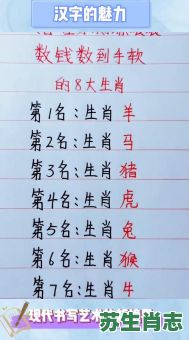 汉字的魅力
数钱数到手软
的8大生肖
第1名:生肖羊
第2名:生肖马
第3名:生肖猪
第4名:生肖虎
第5名:生肖兔
第6名:生肖猴
第7名:生肖牛
现代书写艺术
苏生肖志